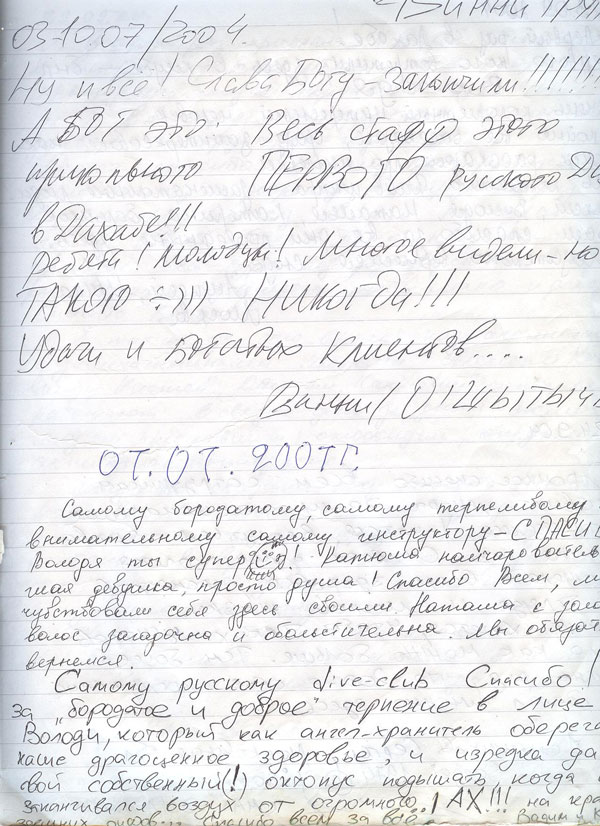 "Винни
03-10.07/2004.
Ну и всё! Слава Богу - закончили!!!!!!!
А вот это. Весь стафф этого
прикольного ПЕРВОГО русского Да
в Дахабе!!!
ребята! молодцы! Многое видели - но
ТАКОГО ÷))) НИКОГДА!!!
Удачи и богатых клиентов....
Винни/
07.07.2001г.
Самому бородатому, самому терпеливому
внимательному самому инструктору - СПАСИ
Володя ты супер! Катюша найчарователь
шая девушка, просто душа! Спасибо Всем, м
чувствовали себя здесь своими. Наташа с золо
волос загадочна и обольстительна. Мы обязат
вернемся.
Самому русскому dive-club Спасибо!
за "бородатое и доброе" терпение в лице
Володи, который как ангел-хранитель оберега
наше драгоценное здоровье, и изредка да
свой собственный(!) октопус подышать когда
заканчивался воздух от огромного..! АХ!!! на кра
рифов... Спасибо всем за всё. Вадим и К